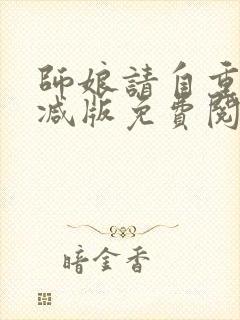 師娘請自重
减版免費閱
暗金香